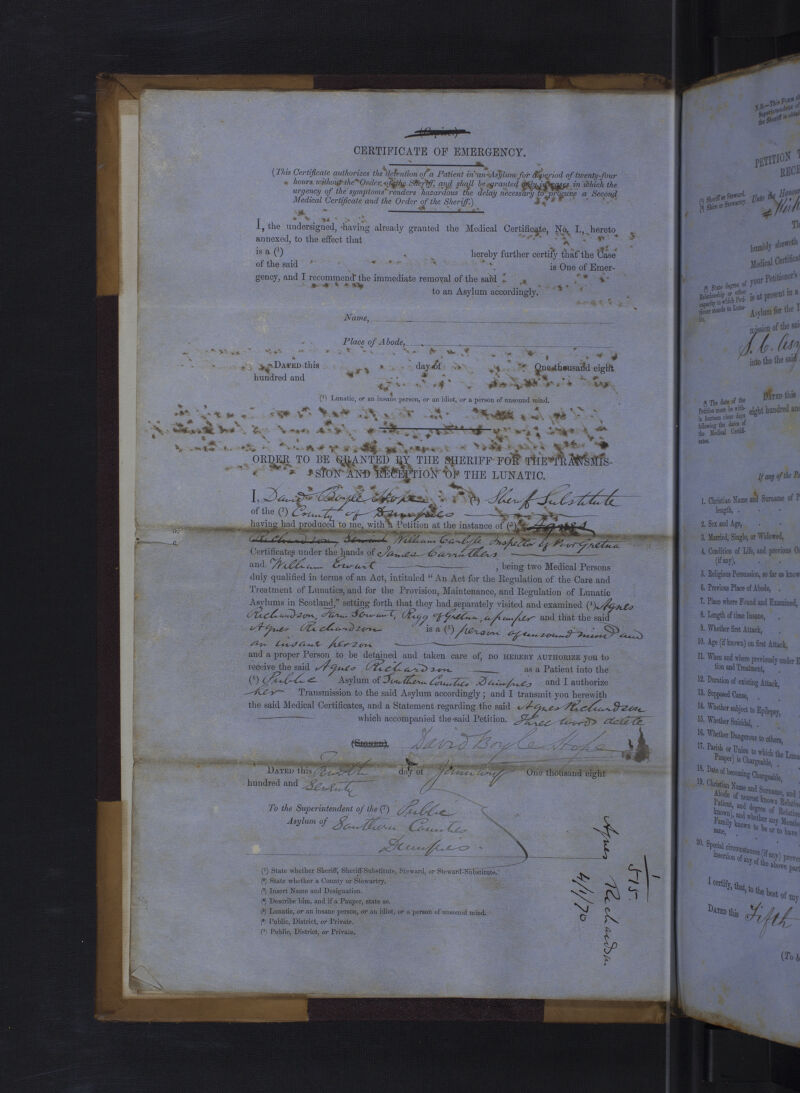 (Copies)
CERTIFICATE OF EMERGENCY.
(This Certificate authorizes the detention of a Patient in an Asylum for a period of twenty-four
hours without the Order of the Sheriff, and shall be granted only in cases in which the
urgency of the symptoms renders hazardous the delay necessary to procure a Second
Medical Certificate and the Order of the Sheriff.)
I, the undersigned, having already granted the Medical Certificate, No. I., hereto
annexed, to the effect that
is a (¹) hereby further certify that the Case
of the said is One of Emer-
gency, and I recommend the immediate removal of the said
to an Asylum accordingly.
Name,
Place of Abode,
DATED this day of One thousand eight
hundred and
(¹) Lunatic, or an insane person, or an idiot, or a person of unsound mind.
ORDER TO BE GRANTED BY THE SHERIFF FOR THE TRANSMIS-
SION AND RECEPTION OF THE LUNATIC.
I, David Boyle Hope (¹) Sheriff Substitute
of the (²) County of Dumfries
having had produced to me, with a Petition at the instance of (³) Agnes
Richardson Servant William Carlyle Inspector of Poor Gretna
Certificates under the hands of James Carruthers
and William Ewart, being two Medical Persons
duly qualified in terms of an Act, intituled "An Act for the Regulation of the Care and
Treatment of Lunatics, and for the Provision, Maintenance, and Regulation of Lunatic
Asylums in Scotland," setting forth that they had separately visited and examined (⁴) Agnes
Richardson, Farm Servant, Rigg of Gretna, a pauper and that the said
Agnes Richardson is a (⁵) person of unsound mind and
an insane person
and a proper Person to be detained and taken care of, DO HEREBY AUTHORIZE you to
receive the said Agnes Richardson as a Patient into the
(⁶) Public Asylum of Southern Counties Dumfries and I authorize
her Transmission to the said Asylum accordingly; and I transmit you herewith
the said Medical Certificates, and a Statement regarding the said Agnes Richardson
which accompanied the said Petition. Three words delete
(Signed), David Boyle Hope
DATED this day of January One thousand eight
hundred and Seventy
To the Superintendent of the (⁷) Public
Asylum of Southern Counties
Dumfries.
(¹) State whether Sheriff, Sheriff-Substitute, Steward, or Steward-Substitute.
(²) State whether a County or Stewartry.
(³) Insert Name and Designation.
(⁴) Describe him, and if a Pauper, state so.
(⁵) Lunatic, or an insane person, or an idiot, or a person of unsound mind.
(⁶) Public, District, or Private.
(⁷) Public, District, or Private.
1
515
Agnes Richardson
4/1/70
N.B.—This Form
Superintendent
the Sheriff
PETITION
RECE
(¹) Sheriff or Steward.
(²) Shire or Stewartry.
Unto the Honour
humbly sheweth
Medical Certificat
your Petitioner's
(³) State degree of
Relationship or other
capacity in which Peti-
tioner stands to Luna-
tic.
is at present in a
Asylum for the
mission of the sai
into the the said
(⁴) The date of the
Petition must be with-
in fourteen clear days
following the dates of
the Medical Certifi-
cates.
DATED this
eight hundred an
If any of the Pa
1. Christian Name and Surname of P
length,
2. Sex and Age,
3. Married, Single, or Widowed,
4. Condition of Life, and previous O
(if any),
5. Religious Persuasion, so far as know
6. Previous Place of Abode,
7. Place where Found and Examined,
8. Length of time Insane,
9. Whether first Attack,
10. Age (if known) on first Attack,
11. When and where previously under E
tion and Treatment,
12. Duration of existing Attack,
13. Supposed Cause,
14. Whether subject to Epilepsy,
15. Whether Suicidal,
16. Whether Dangerous to others,
17. Parish or Union to which the Luna
Pauper) is Chargeable,
18. Date of becoming Chargeable,
19. Christian Name and Surname, and
Abode of nearest known Relativ
Patient, and degree of Relation
known), and whether any Membe
Family known to be or to have
sane,
20. Special circumstances (if any) preven
insertion of any of the above part
I certify, that, to the best of my
DATED this Fifth
(To b